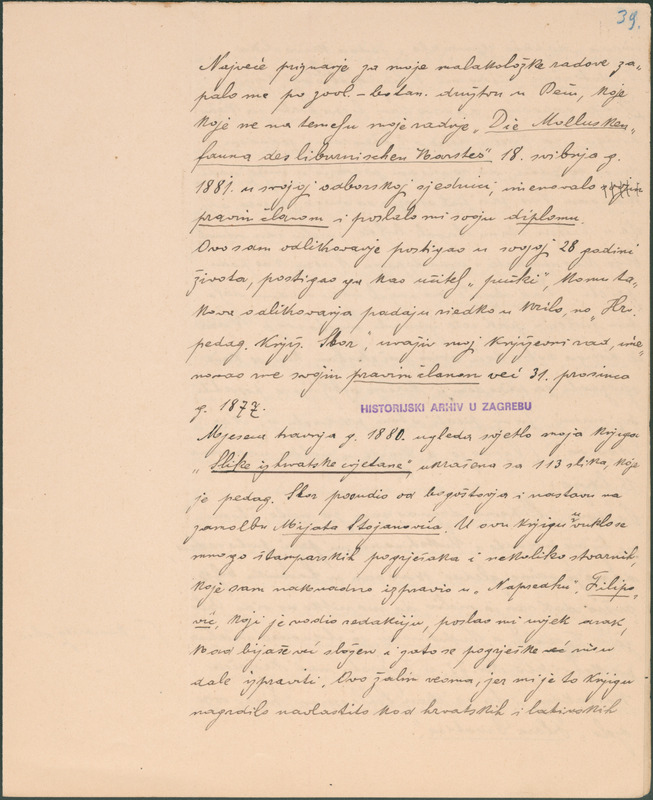 39.
Najveće priznanje za moje malakoložke radove za„
palo me po zool. – botan. družtvu u Beču, koje
koje me na temelju moje radnje „Die Mollusken„
fauna des liburnischen Karstes", 18. svibnja g.
1881. u svojoj odborskoj sjednici, imenovalo
pravim članom i poslalo mi svoju diplomu.
Ovo sam odlikovanje postigao u svojoj 28 godini
života, postigao ga kao učitelj „pučki", komu ta„
kova odlikovanja padaju riedko u krilo, no „Hr.
pedag. knjiž. Sbor", uvaživ moj književni rad, ime„
novao me svojim pravim članom već 31. prosinca
g. 1877.
HISTORIJSKI ARHIV U ZAGREBU
Mjeseca travnja g. 1880. ugleda svjetlo moja knjiga
„Slike iz hrvatske cvjetane", ukrašena sa 113 slika, koje
je pedag. Sbor posudio od bogoštovja i nastavu na
zamolbu Mijata Stojanovića. U ovu knjigu uvuklo se
mnogo štamparskih pogrješaka i nekoliko stvarnih,
koje sam naknadno izpravio u „Napredku". Filipo„
vić, koji je vodio redakciju, poslao mi uvjek arak,
kad bijaše već složen i zato se pogrješke nisu
dale izpraviti. Ovo žalim veoma, jer mi je to knjigu
nagrdilo navlastito kod hrvatskih i latinskih